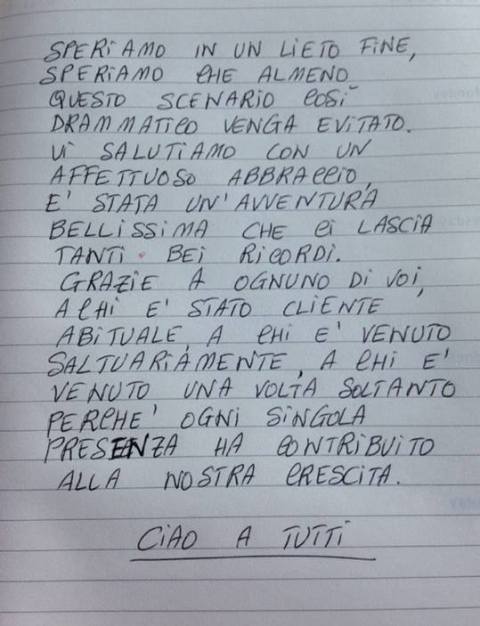 SPERIAMO IN UN LIETO FINE,
SPERIAMO CHE ALMENO
QUESTO SCENARIO COSÌ
DRAMMATICO VENGA EVITATO.
VI SALUTIAMO CON UN
AFFETTUOSO ABBRACCIO,
E' STATA UN'AVVENTURA
BELLISSIMA CHE CI LASCIA
TANTI BEI RICORDI.
GRAZIE A OGNUNO DI VOI,
A CHI E' STATO CLIENTE
ABITUALE, A CHI E' VENUTO
SALTUARIAMENTE, A CHI E'
VENUTO UNA VOLTA SOLTANTO
PERCHE' OGNI SINGOLA
PRESENZA HA CONTRIBUITO
ALLA NOSTRA CRESCITA.
CIAO A TUTTI